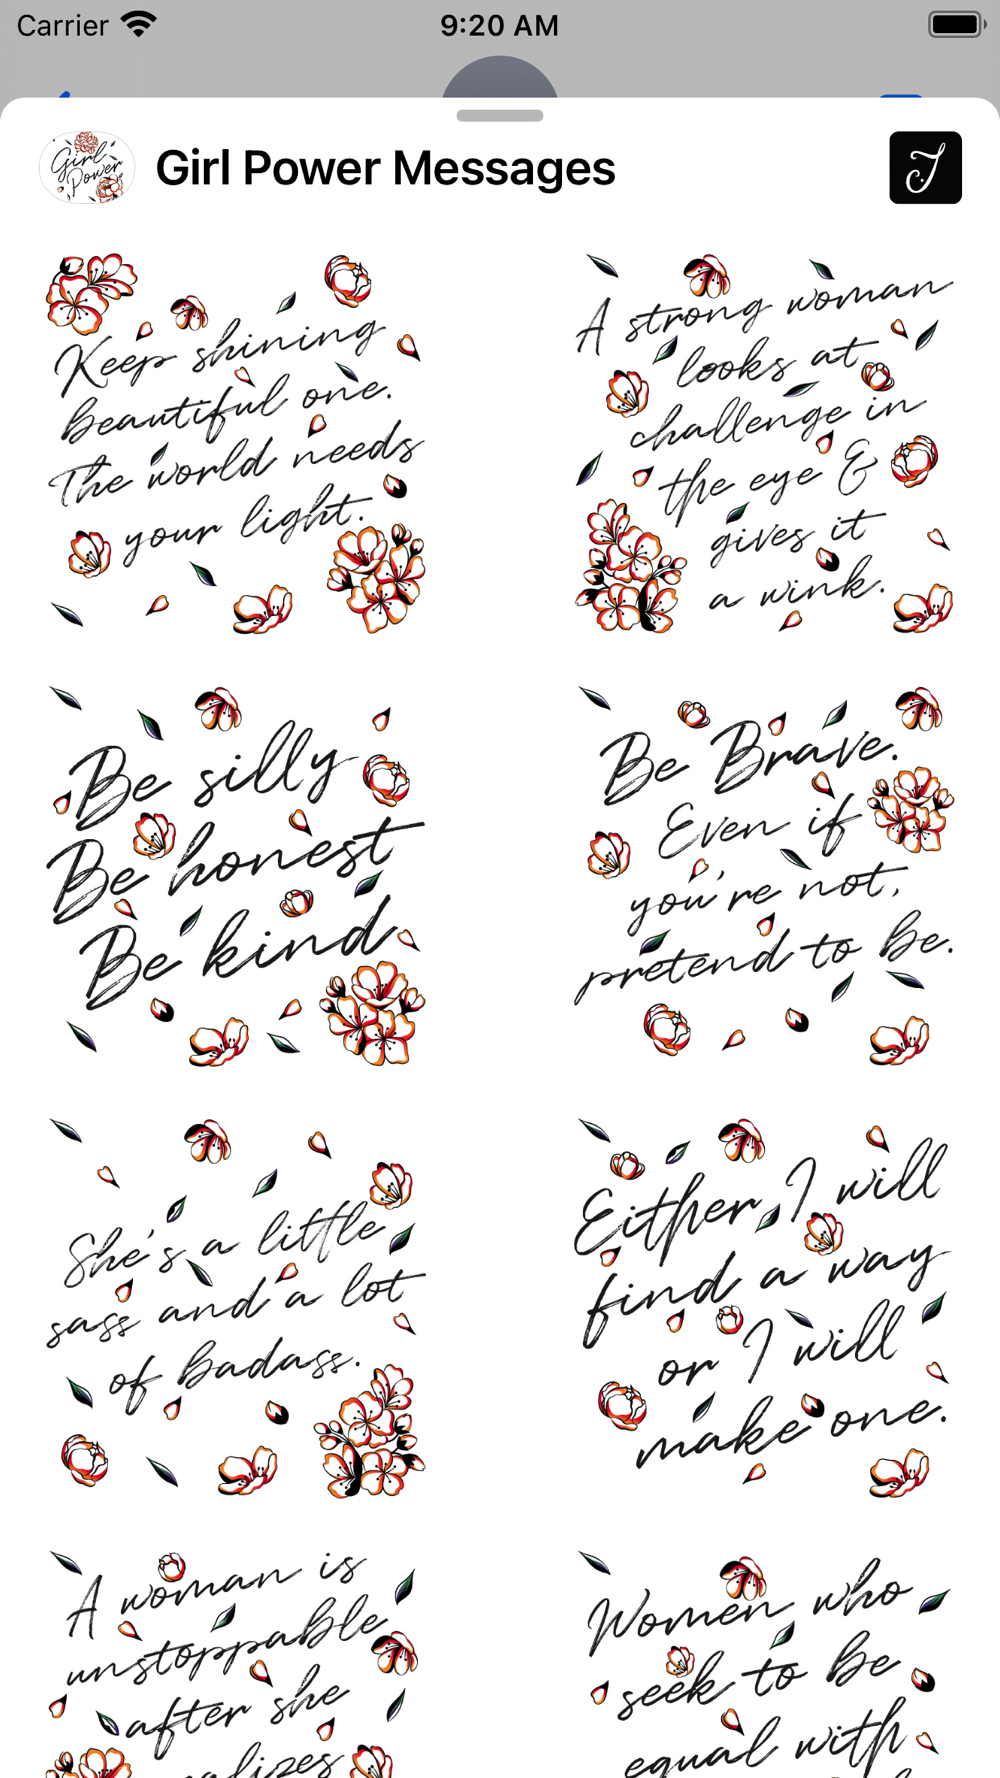 Carrier 9:20 AM
Girl Power
Girl Power Messages
J
Keep shining
beautiful one.
The world needs
your light.
A strong woman
looks at
challenge in
the eye &
gives it
a wink.
Be silly
Be honest
Be kind
Be Brave.
Even if
you're not,
pretend to be.
She's a little
sass and a lot
of badass.
Either I will
find a way
or I will
make one.
A woman is
unstoppable
after she
Women who
seek to be
equal with